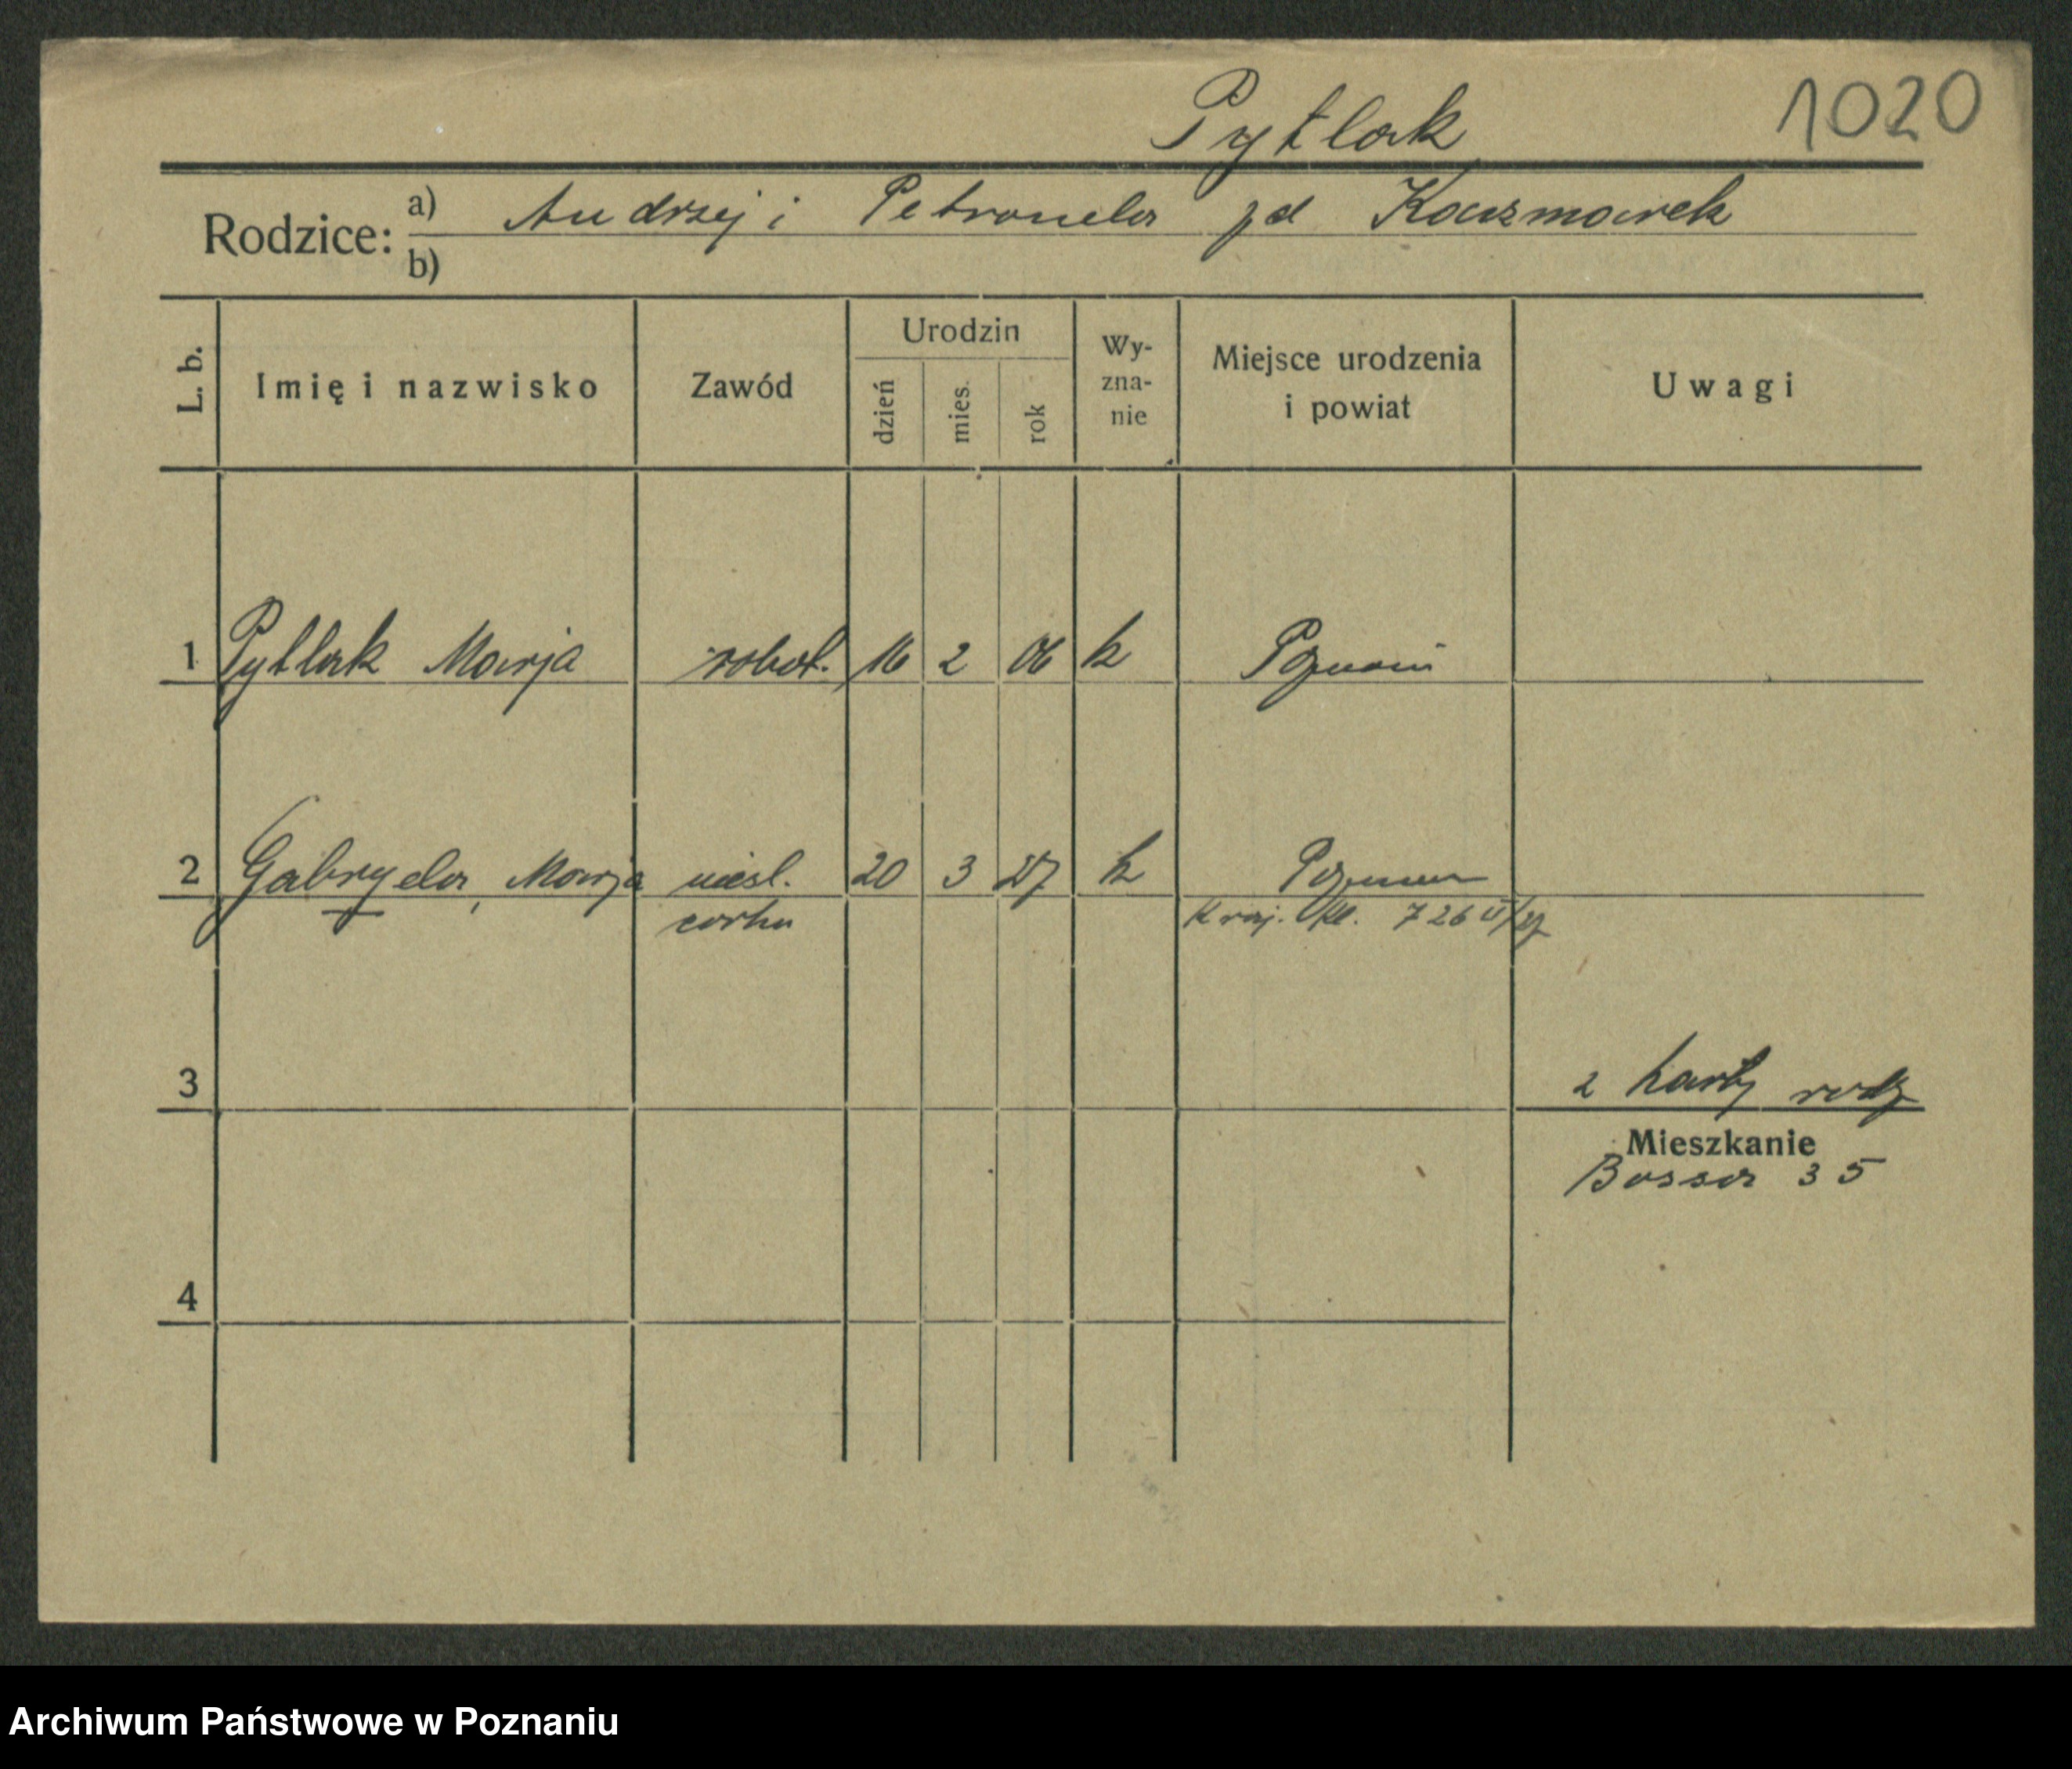 Pytlak 1020
Rodzice: a) Andrzej i Petronela pd Kaczmarek
b)
L. b. Imię i nazwisko Zawód Urodzin dzień mies. rok Wy-zna-nie Miejsce urodzenia i powiat Uwagi
1 Pytlak Marja robot. 16 2 06 k Poznań
2 Gabryela, Marja nieśl. 20 3 27 k Poznań
córka Kraj. Kl. 726 II/27
3 2 karty rodz
Mieszkanie
Bossa 35
4
Archiwum Państwowe w Poznaniu